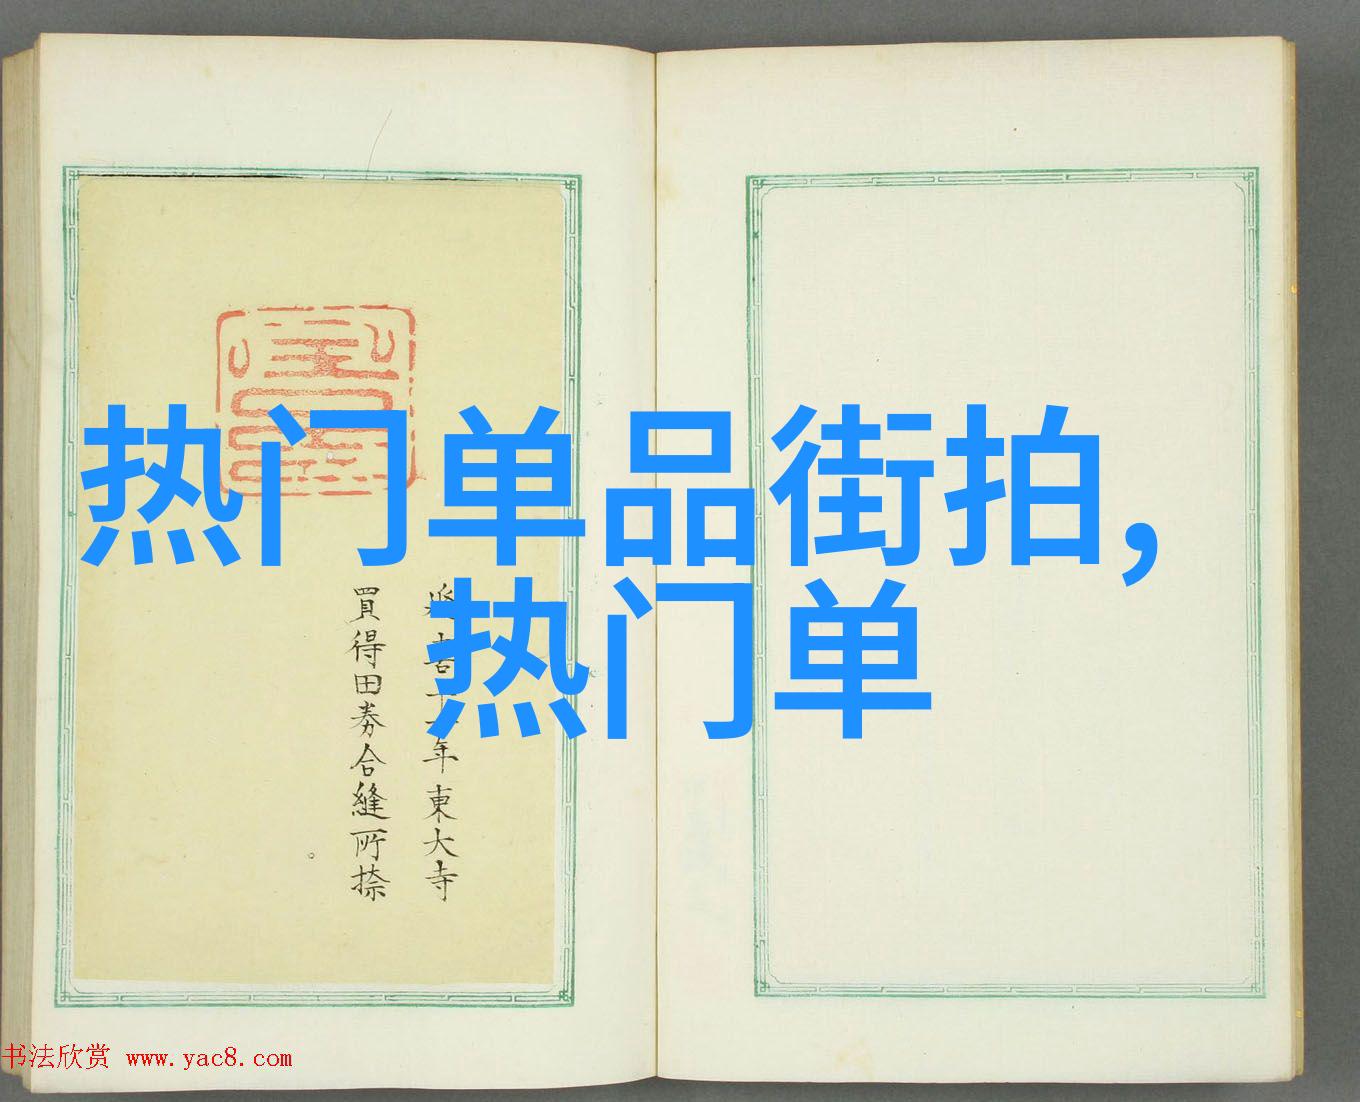 热门单品街拍,
热门单
年東大寺
買得田券合縫所捺
书法欣赏 www.yac8.com